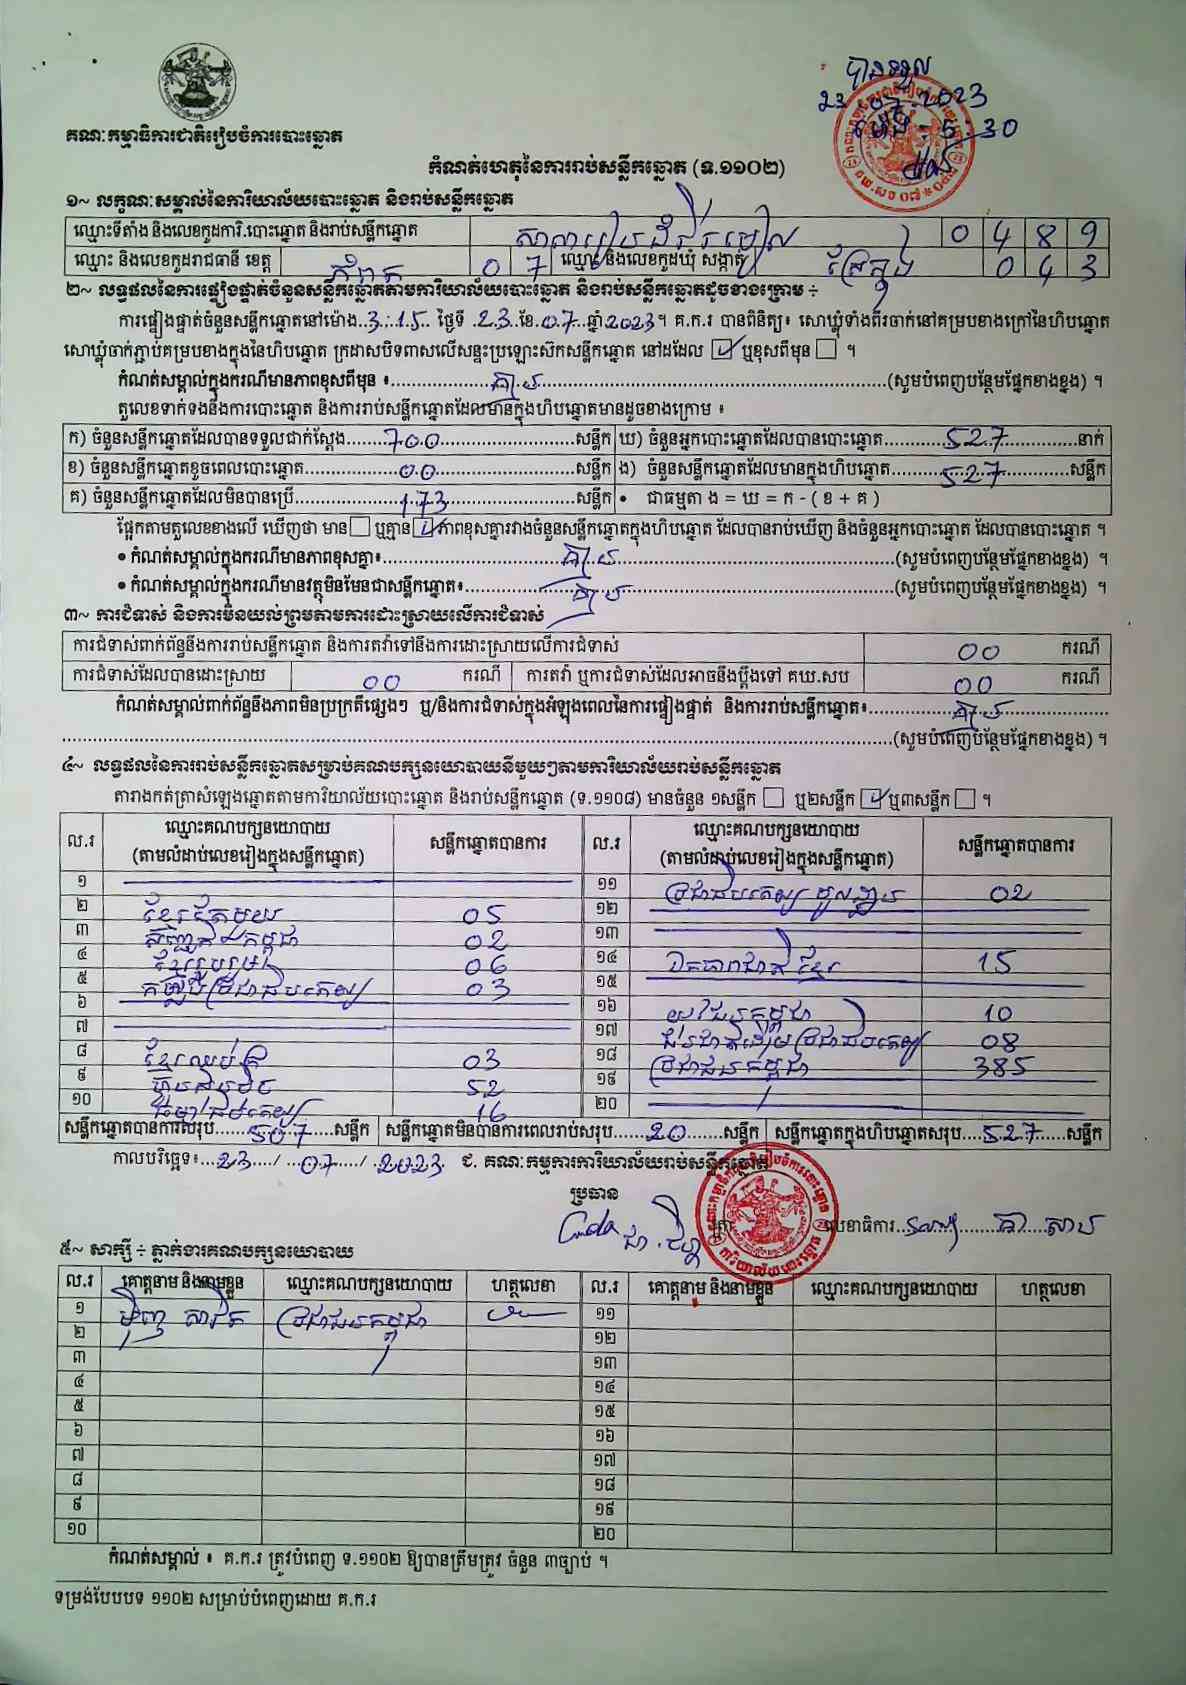 បានទទួល
23.07.2023
ម៉ោង: 5:30
គណៈកម្មាធិការជាតិរៀបចំការបោះឆ្នោត
កំណត់ហេតុនៃការរាប់សន្លឹកឆ្នោត (ទ.១១០២)
១~ លក្ខណៈសម្គាល់នៃការិយាល័យបោះឆ្នោត និងរាប់សន្លឹកឆ្នោត
ឈ្មោះទីតាំង និងលេខកូដការិ.បោះឆ្នោត និងរាប់សន្លឹកឆ្នោត 0 4 8 9
ឈ្មោះ និងលេខកូដរាជធានី ខេត្ត កំពត 0 7 ឈ្មោះ និងលេខកូដឃុំ សង្កាត់ ស្រែក្នុង 0 4 3
២~ លទ្ធផលនៃការផ្ទៀងផ្ទាត់ចំនួនសន្លឹកឆ្នោតតាមការិយាល័យបោះឆ្នោត និងរាប់សន្លឹកឆ្នោតដូចខាងក្រោម ÷
ការផ្ទៀងផ្ទាត់ចំនួនសន្លឹកឆ្នោតនៅម៉ោង..3:15.. ថ្ងៃទី .23..ខែ.07..ឆ្នាំ2023។ គ.ក.រ បានពិនិត្យ៖ សោឃ្លុំទាំងពីរចាក់នៅគម្របខាងក្រៅនៃហិបឆ្នោត
សោឃ្លុំចាក់ភ្ជាប់គម្របខាងក្នុងនៃហិបឆ្នោត ក្រដាសបិទពាសលើសន្ទះប្រឡោះស៊កសន្លឹកឆ្នោត នៅដដែល ☑ ឬខុសពីមុន ☐ ។
កំណត់សម្គាល់ក្នុងករណីមានភាពខុសពីមុន ៖......គ្មាន......(សូមបំពេញបន្ថែមផ្នែកខាងខ្នង) ។
តួលេខទាក់ទងនឹងការបោះឆ្នោត និងការរាប់សន្លឹកឆ្នោតដែលមានក្នុងហិបឆ្នោតមានដូចខាងក្រោម ៖
ក) ចំនួនសន្លឹកឆ្នោតដែលបានទទួលជាក់ស្តែង......700......សន្លឹក ឃ) ចំនួនអ្នកបោះឆ្នោតដែលបានបោះឆ្នោត......527......នាក់
ខ) ចំនួនសន្លឹកឆ្នោតខូចពេលបោះឆ្នោត......00......សន្លឹក ង) ចំនួនសន្លឹកឆ្នោតដែលមានក្នុងហិបឆ្នោត......527......សន្លឹក
គ) ចំនួនសន្លឹកឆ្នោតដែលមិនបានប្រើ......173......សន្លឹក • ជាធម្មតា ង = ឃ = ក - ( ខ + គ )
ផ្អែកតាមតួលេខខាងលើ ឃើញថា មាន ☐ ឬគ្មាន ☑ ភាពខុសគ្នារវាងចំនួនសន្លឹកឆ្នោតក្នុងហិបឆ្នោត ដែលបានរាប់ឃើញ និងចំនួនអ្នកបោះឆ្នោត ដែលបានបោះឆ្នោត ។
• កំណត់សម្គាល់ក្នុងករណីមានភាពខុសគ្នា៖......គ្មាន......(សូមបំពេញបន្ថែមផ្នែកខាងខ្នង) ។
• កំណត់សម្គាល់ក្នុងករណីមានវត្ថុមិនមែនជាសន្លឹកឆ្នោត៖......គ្មាន......(សូមបំពេញបន្ថែមផ្នែកខាងខ្នង) ។
៣~ ការជំទាស់ និងការមិនយល់ព្រមតាមការដោះស្រាយលើការជំទាស់
ការជំទាស់ពាក់ព័ន្ធនឹងការរាប់សន្លឹកឆ្នោត និងការតវ៉ាទៅនឹងការដោះស្រាយលើការជំទាស់ 00 ករណី
ការជំទាស់ដែលបានដោះស្រាយ 00 ករណី ការតវ៉ា ឬការជំទាស់ដែលអាចនឹងប្តឹងទៅ គឃ.សប 00 ករណី
កំណត់សម្គាល់ពាក់ព័ន្ធនឹងភាពមិនប្រក្រតីផ្សេងៗ ឬ/និងការជំទាស់ក្នុងអំឡុងពេលនៃការផ្ទៀងផ្ទាត់ និងការរាប់សន្លឹកឆ្នោត៖......គ្មាន......
......(សូមបំពេញបន្ថែមផ្នែកខាងខ្នង) ។
៤~ លទ្ធផលនៃការរាប់សន្លឹកឆ្នោតសម្រាប់គណបក្សនយោបាយនីមួយៗតាមការិយាល័យរាប់សន្លឹកឆ្នោត
តារាងកត់ត្រាសំឡេងឆ្នោតតាមការិយាល័យបោះឆ្នោត និងរាប់សន្លឹកឆ្នោត (ទ.១១០៨) មានចំនួន ១សន្លឹក ☐ ឬ២សន្លឹក ☑ ឬ៣សន្លឹក ☐ ។
ល.រ ឈ្មោះគណបក្សនយោបាយ (តាមលំដាប់លេខរៀងក្នុងសន្លឹកឆ្នោត) សន្លឹកឆ្នោតបានការ ល.រ ឈ្មោះគណបក្សនយោបាយ (តាមលំដាប់លេខរៀងក្នុងសន្លឹកឆ្នោត) សន្លឹកឆ្នោតបានការ
១ ១១ ប្រជាធិបតេយ្យមូលដ្ឋាន 02
២ ខ្មែរតែមួយ 05 ១២
៣ សញ្ជាតិកម្ពុជា 02 ១៣
៤ ខ្មែររួបរួម 06 ១៤ ឯកភាពជាតិខ្មែរ 15
៥ កម្លាំងប្រជាធិបតេយ្យ 03 ១៥
៦ ១៦ យុវជនកម្ពុជា 10
៧ ១៧ ជនជាតិដើមប្រជាធិបតេយ្យ 08
៨ ខ្មែរឈប់ក្រ 03 ១៨ ប្រជាជនកម្ពុជា 385
៩ ហ៊្វុនស៊ិនប៉ិច 52 ១៩
១០ ធម្មាធិបតេយ្យ 16 ២០
សន្លឹកឆ្នោតបានការសរុប......507......សន្លឹក សន្លឹកឆ្នោតមិនបានការពេលរាប់សរុប......20......សន្លឹក សន្លឹកឆ្នោតក្នុងហិបឆ្នោតសរុប....527......សន្លឹក
កាលបរិច្ឆេទ៖...23..../...07..../..2023. ជ. គណៈកម្មការការិយាល័យរាប់សន្លឹកឆ្នោត
ប្រធាន
លេខាធិការ
៥~ សាក្សី ÷ ភ្នាក់ងារគណបក្សនយោបាយ
ល.រ គោត្តនាម និងនាមខ្លួន ឈ្មោះគណបក្សនយោបាយ ហត្ថលេខា ល.រ គោត្តនាម និងនាមខ្លួន ឈ្មោះគណបក្សនយោបាយ ហត្ថលេខា
១ ប្រជាជនកម្ពុជា ១១
២ ១២
៣ ១៣
៤ ១៤
៥ ១៥
៦ ១៦
៧ ១៧
៨ ១៨
៩ ១៩
១០ ២០
កំណត់សម្គាល់ ៖ គ.ក.រ ត្រូវបំពេញ ទ.១១០២ ឱ្យបានត្រឹមត្រូវ ចំនួន ៣ច្បាប់ ។
ទម្រង់បែបបទ ១១០២ សម្រាប់បំពេញដោយ គ.ក.រ